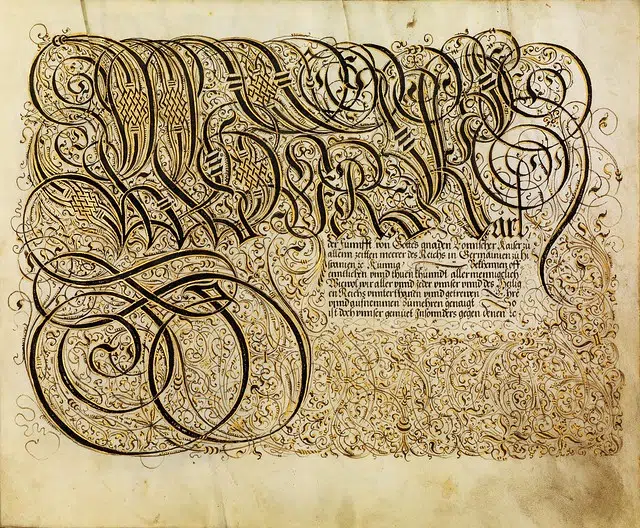 arl
der fünfft von Gottes gnaden Römischer Kaiser zu
allenn zeitten meerer des Reichs in Germanien zu hi
spannien ꝛc Künnig / bekhennen off
enntlichen vnnd thuen khunndt allermenigklich
Wiewol wir aller vnnd jeder vnnser vnnd des Heilig
en Reichs vnnterthanen vnnd getrewen Ehre
vnnd zumehren genaigt
ist doch vnnser gemüet Insonnders gegen denen ꝛc